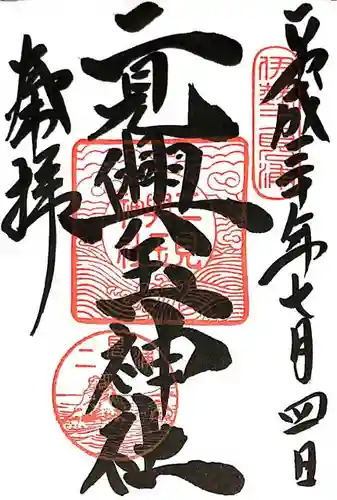 平成二十年七月四日
伊勢二見浦
二見興玉神社
二見興玉神社
奉拝